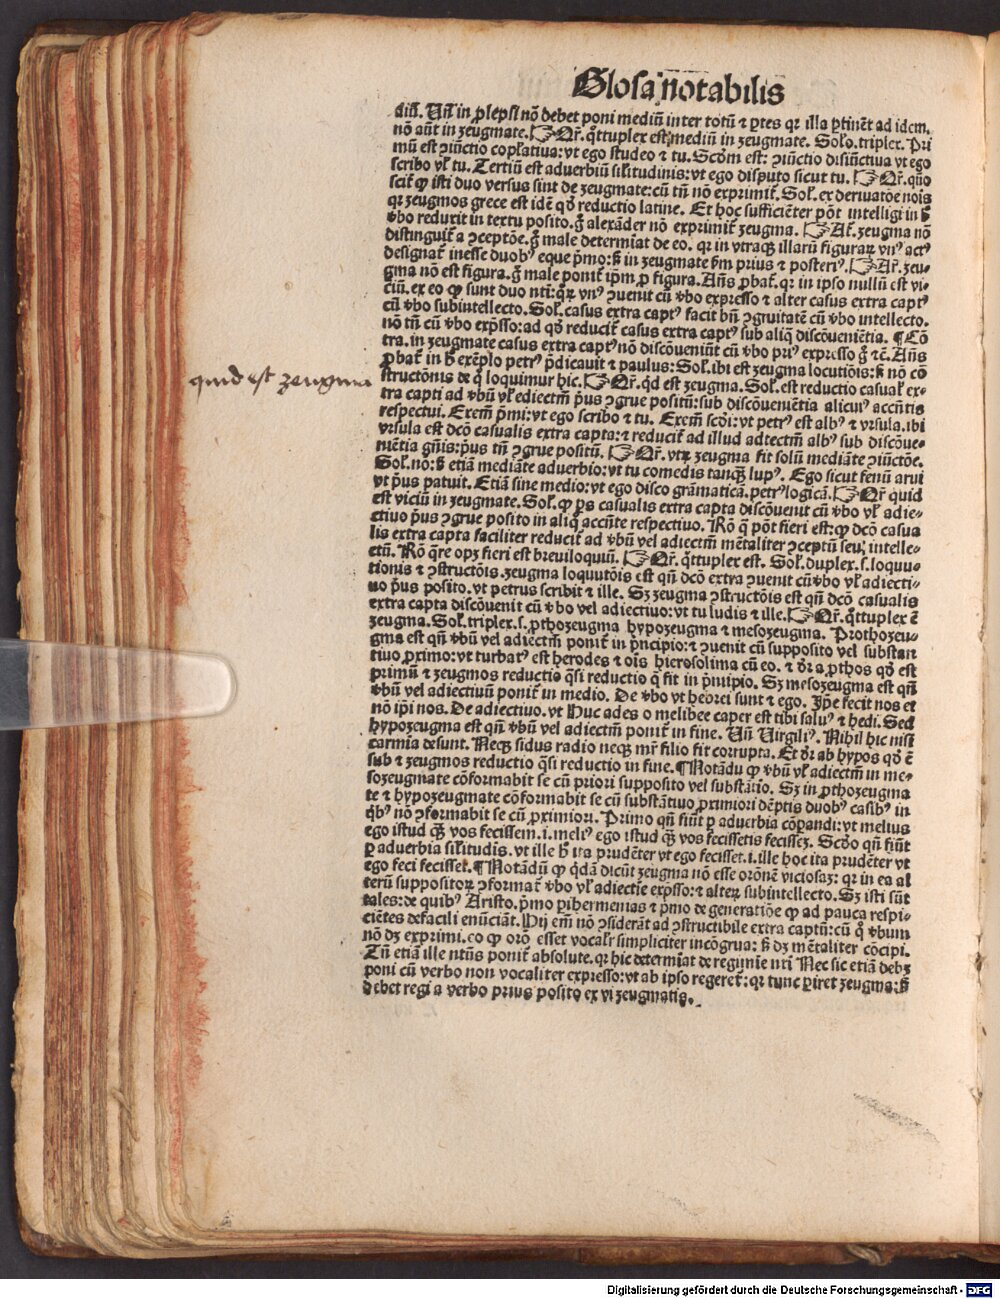 Glosa notabilis
diū. Uñ in ꝓlepsi nō debet poni mediū inter totū ⁊ ꝑtes qꝛ illa ꝑtinēt ad idem.
nō aūt in zeugmate. ☞Qr̄. q̊ttuplex est mediū in zeugmate. Solo. triplex. Pri
mū est ↄiūctio copl̄atiua: vt ego studeo ⁊ tu. Scd̄m est: ↄiūctio disiūctiua vt ego
scribo vl̓ tu. Tertiū est aduerbiū sil̓itudinis: vt ego disputo sicut tu. ☞Qr̄. quō
scit̄ ꝙ isti duo versus sint de zeugmate: cū tn̄ nō exprimit̄. Sol̓. ex deriuatōe nois
qꝛ zeugmos grece est idē qd̓ reductio latine. Et hoc sufficiēter pōt intelligi in h̄
ꝟbo reduxit in textu posito. g̊ alexāder nō exprimit̄ zeugma. ☞Ar̄. zeugma nō
distinguit̄ a ↄceptōe. g̊ male determīat de eo. qꝛ in vtraqꝫ illarū figuraꝝ vnꝰ actꝰ
designat̄ inesse duobꝰ eque p̄mo: s̄ in zeugmate ẜm prius ⁊ posteriꝰ. ☞Ar̄. zeu-
gma nō est figura. g̊ male ponit̄ ip̄m ꝓ figura. Añs ꝓbat̄. qꝛ in ipso nullū est vi-
ciū. ex eo ꝙ sunt duo nt̄i: qꝝ vnꝰ ↄuenit cū ꝟbo expresso ⁊ alter casus extra captꝰ
cū ꝟbo subintellecto. Sol̓. casus extra captꝰ facit bn̄ ↄgruitatē cū ꝟbo intellecto.
nō tn̄ cū ꝟbo exp̄sso: ad qd̓ reducit̄ casus extra captꝰ sub aliq̄ discōueniētia. ¶Cō
tra. in zeugmate casus extra captꝰ nō discōueniūt cū ꝟbo priꝰ expresso g̊ ⁊c̄. Añs
ꝓbat̄ in h̄ exēplo petrꝰ p̄dicauit ⁊ paulus: Sol̓. ibi est zeugma locutiōis: s̄ nō cō
structōnis de q̄ loquimur hic. ☞Qr̄. qd̓ est zeugma. Sol̓. est reductio casual̓ ex-
quid est zeugma
tra capti ad ꝟbū vl̓ adiectm̄ p̄us ↄgrue positū: sub discōueniētia alicuiꝰ accn̄tis
respectui. Exem̄ p̄mi: vt ego scribo ⁊ tu. Exem̄ scd̓i: vt petrꝰ est albꝰ ⁊ vrsula. ibi
vrsula est dcō casualis extra capta: ⁊ reducit̄ ad illud adiectm̄ albꝰ sub discōue-
niētia gn̄is: p̄us tn̄ ↄgrue positū. ☞Qr̄. vtꝝ zeugma fit solū mediāte ↄiūctōe.
Sol̓. nō: s̄ etiā mediāte aduerbio: vt tu comedis tanqꝫ lupꝰ. Ego sicut fenū arui
vt p̄us patuit. Etiā sine medio: vt ego disco grāmaticā. petrꝰ logicā. ☞Qr̄ quid
est viciū in zeugmate. Sol̓. ꝙ ꝑs casualis extra capta discōuenit cū ꝟbo vl̓ adie-
ctiuo p̄us ↄgrue posito in aliq̄ accn̄te respectiuo. Rō q̄ pōt fieri est: ꝙ dcō casua
lis extra capta faciliter reducit̄ ad ꝟbū vel adiectm̄ mētaliter ↄceptū seu intelle-
ctū. Rō q̄re opꝫ fieri est breuiloquiū. ☞Qr̄. q̊ttuplex est. Sol̓. duplex. s. loquu-
tionis ⁊ ↄstructōis. zeugma loquutōis est qn̄ dcō extra ↄuenit cū ꝟbo vl̓ adiecti-
uo p̄us posito. vt petrus scribit ⁊ ille. Sꝫ zeugma ↄstructōis est qn̄ dcō casualis
extra capta discōuenit cū ꝟbo vel adiectiuo: vt tu ludis ⁊ ille. ☞Qr̄. q̊ttuplex ē
zeugma. Sol̓. triplex. s. ꝓthozeugma hypozeugma ⁊ mesozeugma. Prothozeu-
gma est qn̄ ꝟbū vel adiectm̄ ponit̄ in p̄ncipio: ⁊ ↄuenit cū supposito vel substan
tiuo ꝓximo: vt turbatꝰ est herodes ⁊ oīs hierosolima cū eo. ⁊ dr̄ a ꝓthos qd̓ est
primū ⁊ zeugmos reductio q̄si reductio q̄ fit in p̄ncipio. Sꝫ mesozeugma est qn̄
ꝟbū vel adiectiuū ponit̄ in medio. De ꝟbo vt hebrei sunt ⁊ ego. Ip̄e fecit nos et
nō ip̄i nos. De adiectiuo. vt Huc ades o melibee caper est tibi saluꝰ ⁊ hedi. Sed
hypozeugma est qn̄ ꝟbū vel adiectm̄ ponit̄ in fine. Uñ Uirgiliꝰ. Nihil hic nisi
carmīa desunt. Necꝫ sidus radio necꝫ mr̄ filio fit corrupta. Et dr̄ ab hypos qd̓ ē
sub ⁊ zeugmos reductio q̄si reductio in fine. ¶Notādū ꝙ ꝟbū vl̓ adiectm̄ in me-
sozeugmate cōformabit se cū priori supposito vel substātio. Sꝫ in ꝓthozeugma
te ⁊ hypozeugmate cōformabit se cū substātiuo ꝓximiori dēptis duobꝰ casibꝰ in
q̄bꝰ nō ↄformabit se cū ꝓximiori. Primo qn̄ fiūt ꝑ aduerbia cōꝑandi: vt melius
ego istud qꝫ vos fecissem. i. meliꝰ ego istud qꝫ vos fecissetis fecissez. Scd̓o qn̄ fiūt
ꝑ aduerbia sil̓itudis. vt ille h̄ ita prudēter vt ego fecisset. i. ille hoc ita prudēter vt
ego feci fecisset. ¶Notādū ꝙ q̄dā dicūt zeugma nō esse orōnē viciosaz: qꝛ in ea al
terū suppositoꝝ ↄformat̄ ꝟbo vl̓ adiectie exp̄sso: ⁊ alteꝝ subintellecto. Sꝫ isti sūt
tales: de quibꝰ Aristo. p̄mo ꝑihermenias ⁊ p̄mo de generatiōe ꝙ ad pauca respi-
ciētes defacili enūciāt. Hij em̄ nō ↄsiderāt ad ↄstructibile extra captū: cū q̊ ꝟbum
nō dꝫ exprimi. eo ꝙ orō esset vocalr̄ simpliciter incōgrua: s̄ dꝫ mētaliter cōcipi.
Tn̄ etiā ille nt̄us ponit̄ absolute. qꝛ hic determīat de regimīe nt̄i Nec sic etiā debꝫ
poni cū verbo non vocaliter expresso: vt ab ipso regeret̄: qꝛ tunc ꝑiret zeugma: s̄
debet regi a verbo prius posito ex vi zeugmatis.
Digitalisierung gefördert durch die Deutsche Forschungsgemeinschaft - DFG